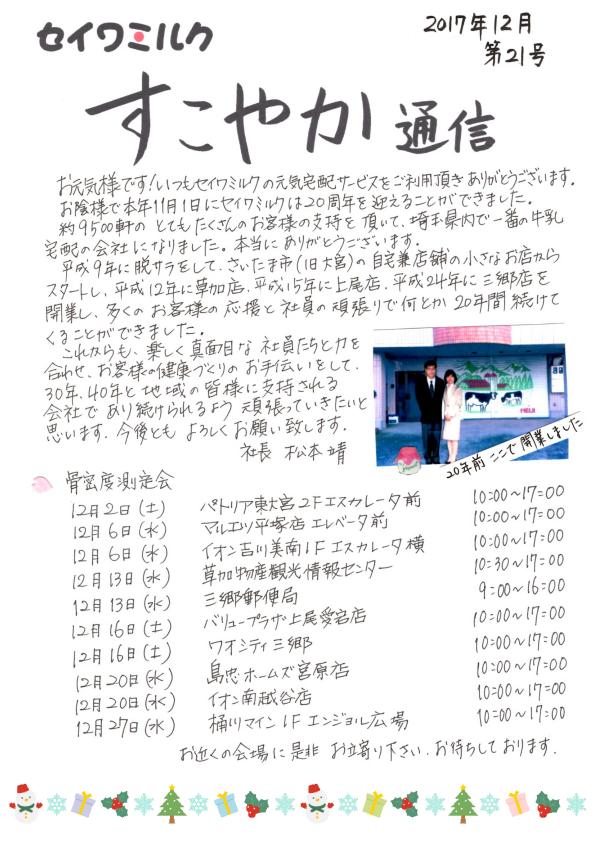 セイワミルク
2017年12月
第21号
すこやか通信
お元気様です!いつもセイワミルクの元気宅配サービスをご利用頂きありがとうございます。
お陰様で本年11月1日にセイワミルクは20周年を迎えることができました。
約9500軒のとてもたくさんのお客様の支持を頂いて、埼玉県内で一番の牛乳
宅配の会社になりました。本当にありがとうございます。
平成9年に脱サラをして、さいたま市(旧大宮)の自宅兼店舗の小さなお店から
スタートし、平成12年に草加店、平成15年に上尾店、平成24年に三郷店を
開業し、多くのお客様の応援と社員の頑張りで何とか20年間続けて
くることができました。
これからも、楽しく真面目な社員たちと力を
合わせ、お客様の健康づくりのお手伝いをして、
30年、40年と地域の皆様に支持される
会社であり続けられるよう頑張っていきたいと
思います。今後ともよろしくお願い致します。
社長 松本靖
20年前ここで開業しました
骨密度測定会
12月2日(土) パトリア東大宮2Fエスカレータ前 10:00~17:00
12月6日(水) マルエツ平塚店エレベータ前 10:00~17:00
12月6日(水) イオン吉川美南1Fエスカレータ横 10:00~17:00
12月13日(水) 草加物産観光情報センター 10:30~17:00
12月13日(水) 三郷郵便局 9:00~16:00
12月16日(土) バリュープラザ上尾愛宕店 10:00~17:00
12月16日(土) ワオシティ三郷 10:00~17:00
12月20日(水) 島忠ホームズ宮原店 10:00~17:00
12月20日(水) イオン南越谷店 10:00~17:00
12月27日(水) 桶川マイン1Fエンジョル広場 10:00~17:00
お近くの会場に是非お立寄り下さい。お待ちしております。